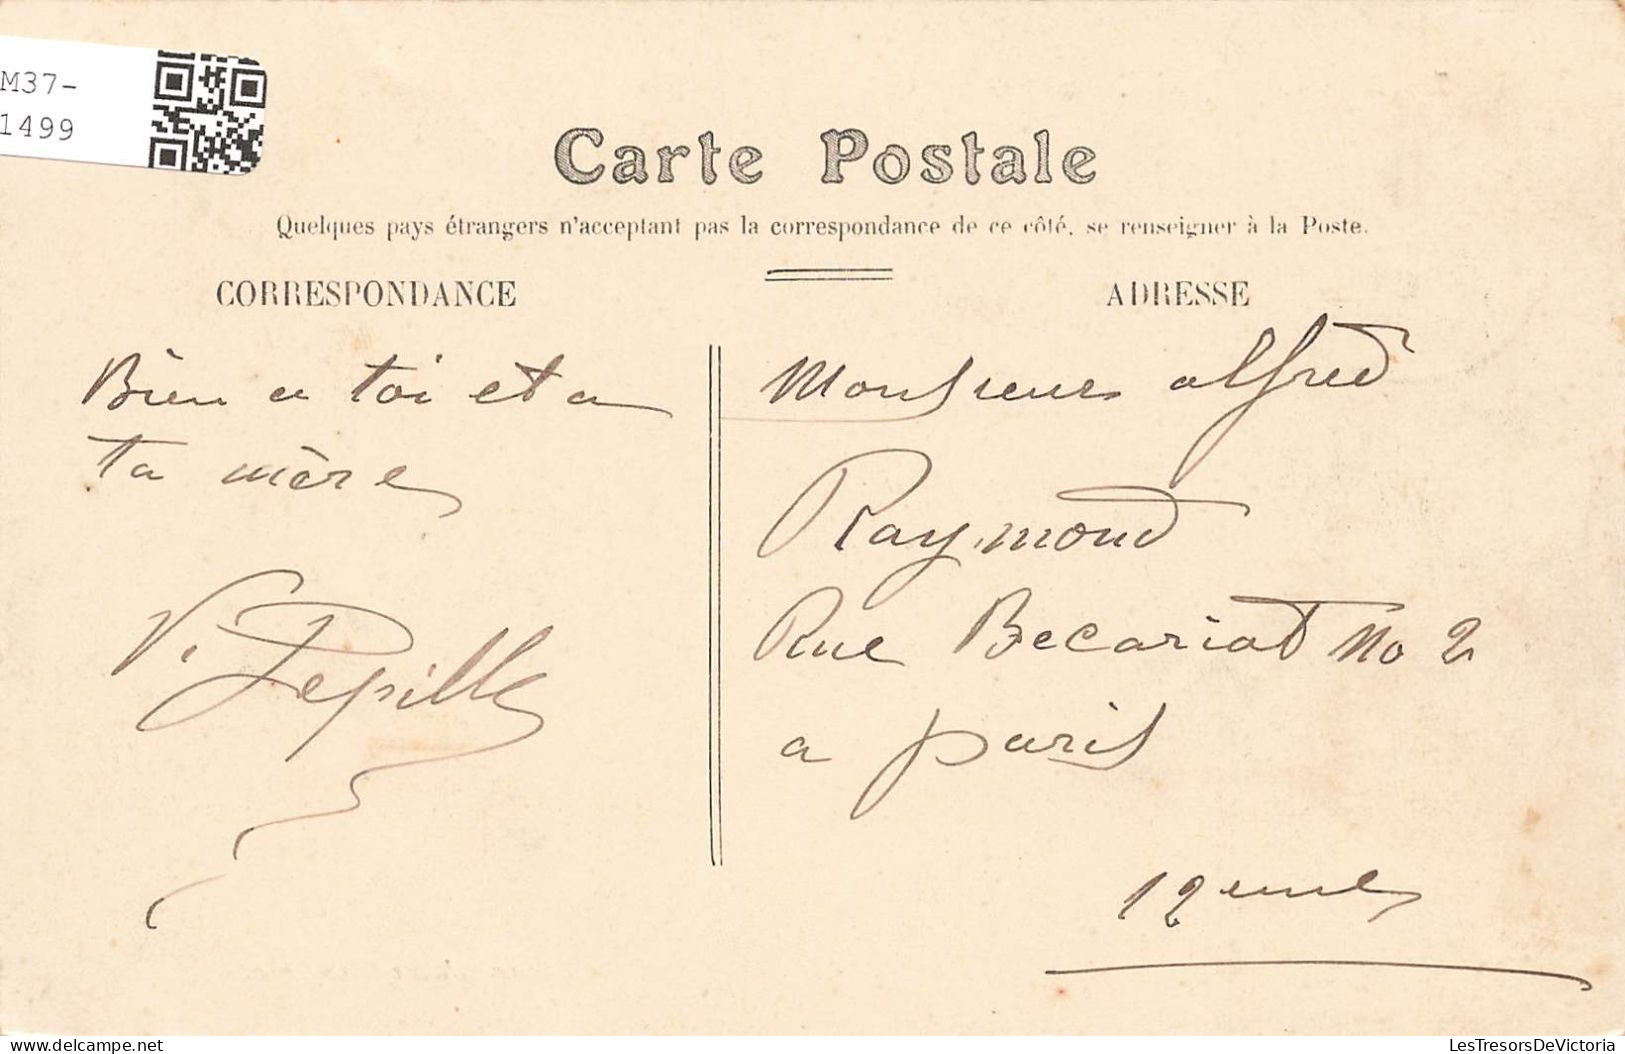 M37-
1499
Carte Postale
Quelques pays étrangers n'acceptant pas la correspondance de ce côté, se renseigner à la Poste.
CORRESPONDANCE
Bien a toi et a
ta mère
V. Pepille
ADRESSE
Monsieur alfred
Raymond
Rue Becariat No 2
a paris
12eme
delcampe.net
LesTresorsDeVictoria